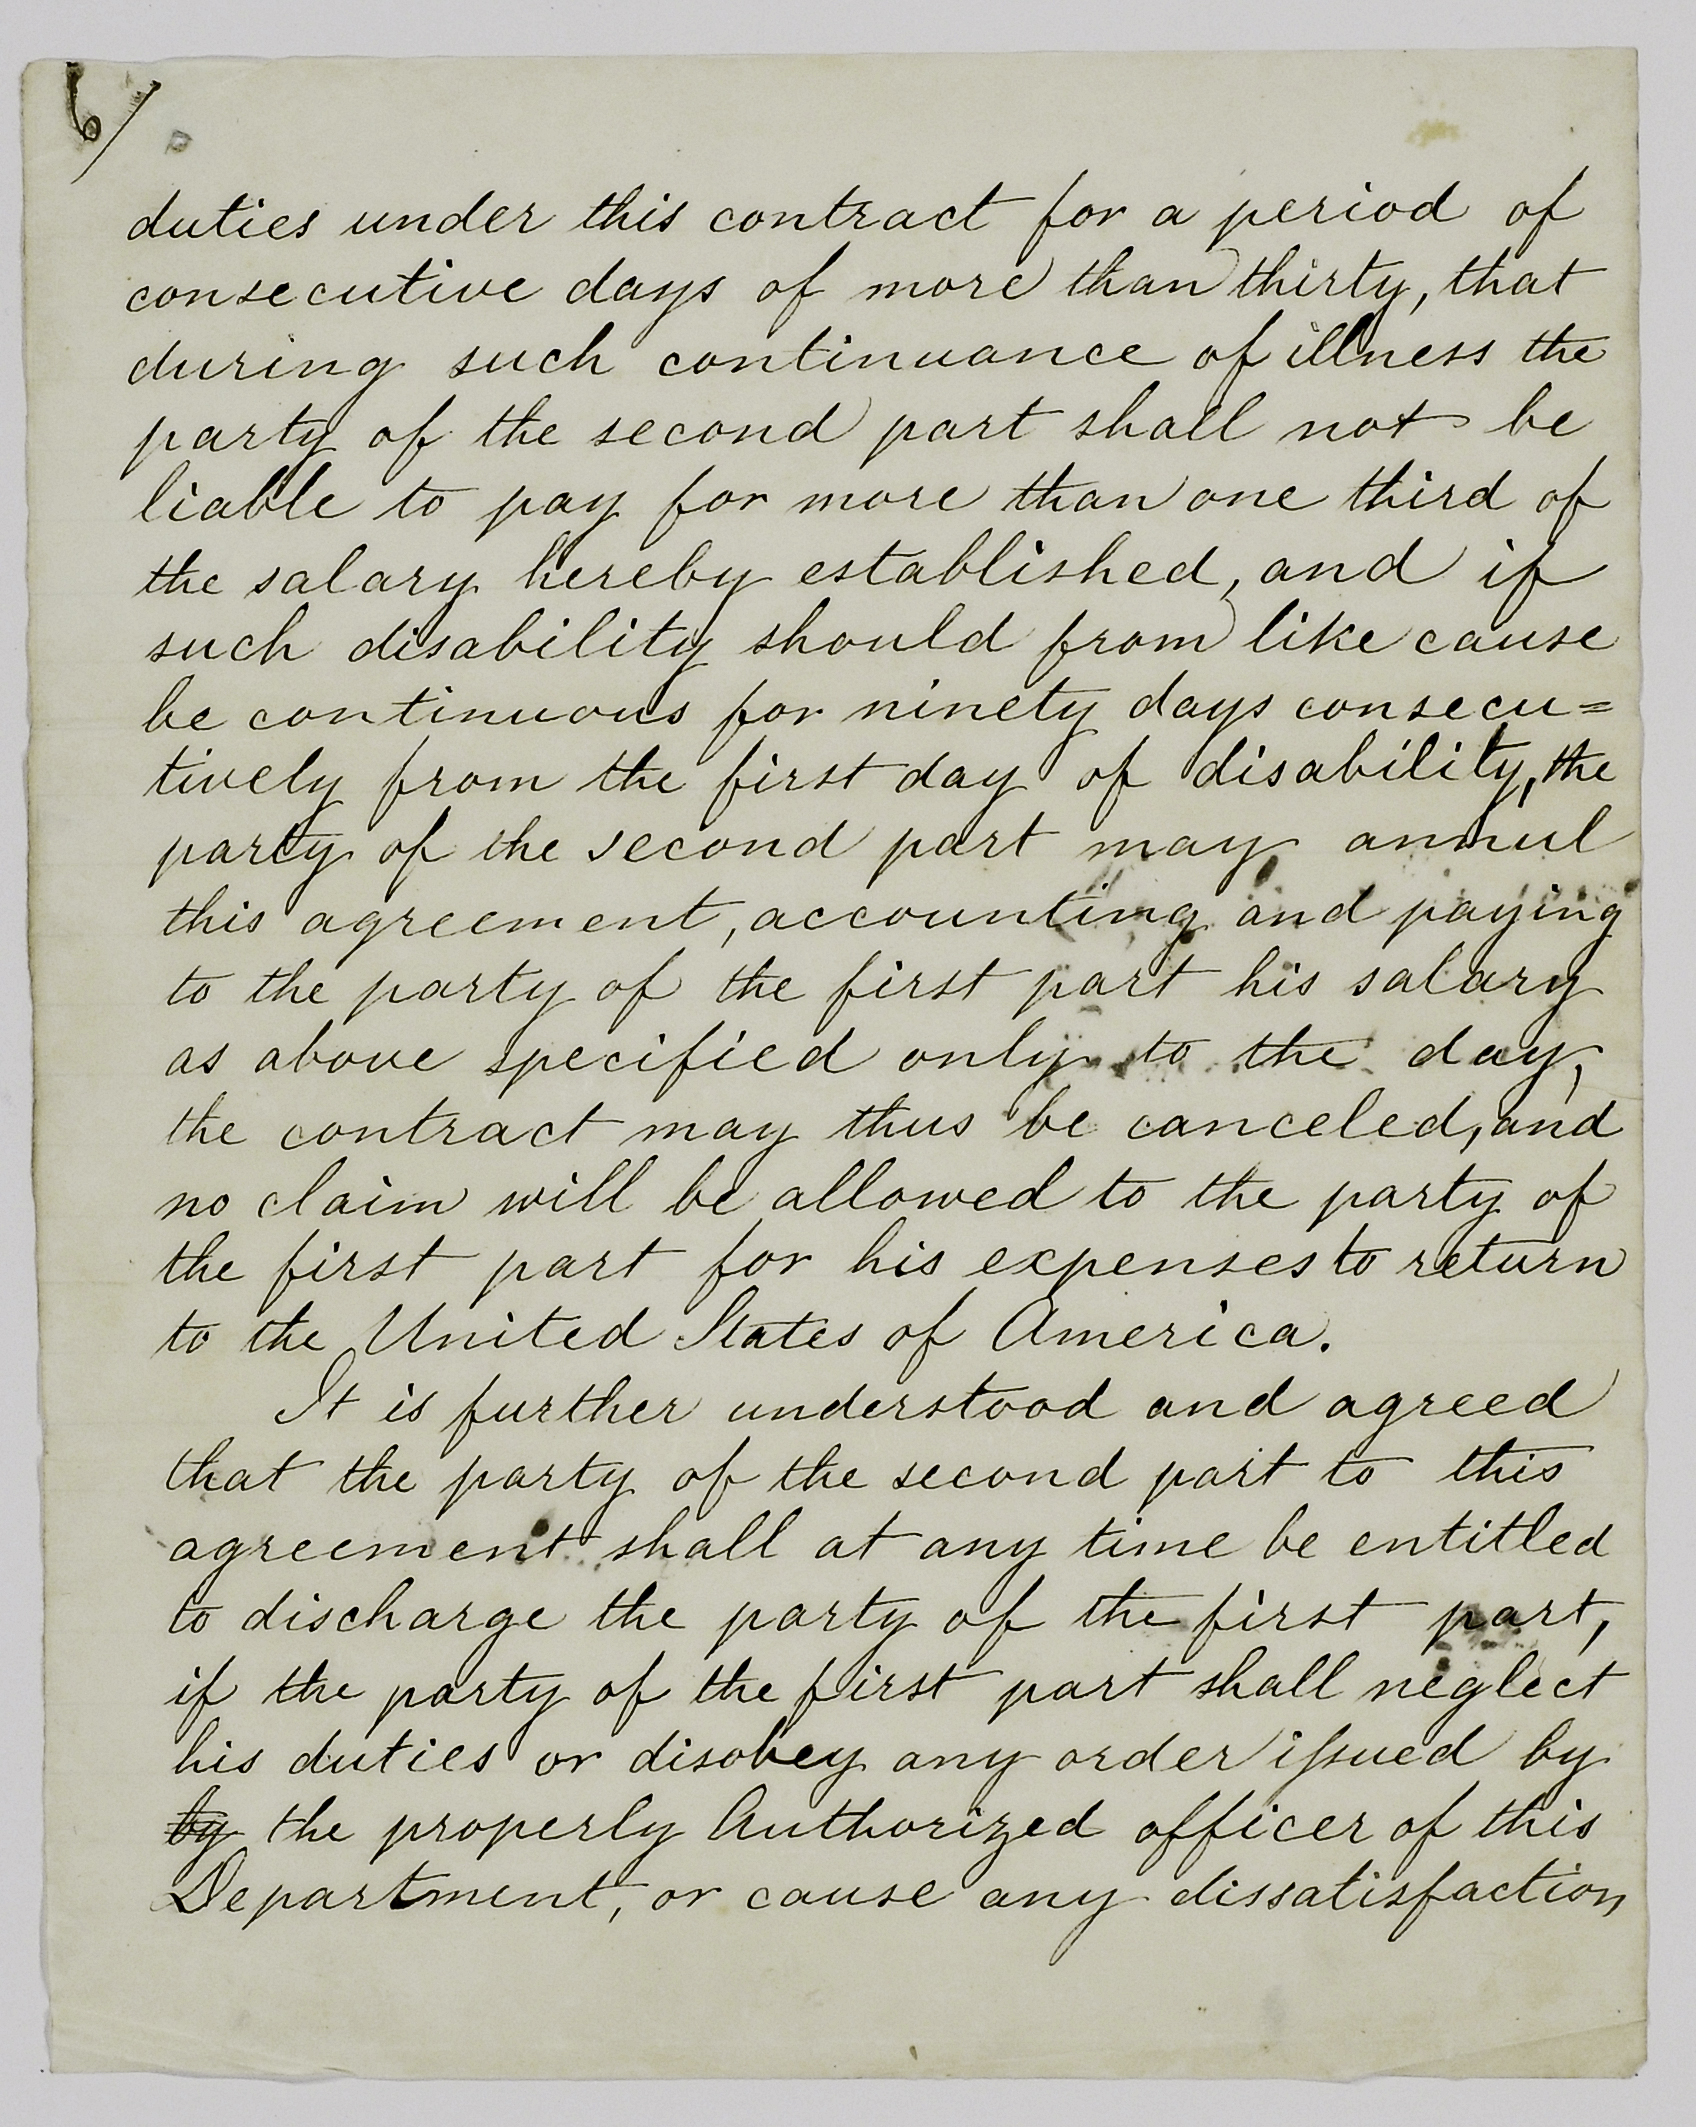 6/
duties under this contract for a period of
consecutive days of more than thirty, that
during such continuance of illness the
party of the second part shall not be
liable to pay for more than one third of
the salary hereby established, and if
such disability should from like cause
be continuous for ninety days consecu=
tively from the first day of disability, the
party of the second part may annul
this agreement, accounting and paying
to the party of the first part his salary
as above specified only to the day,
the contract may thus be canceled, and
no claim will be allowed to the party of
the first part for his expenses to return
to the United States of America.
It is further understood and agreed
that the party of the second part to this
agreement shall at any time be entitled
to discharge the party of the first part,
if the party of the first part shall neglect
his duties or disobey any order issued by
by the properly Authorized officer of this
Department, or cause any dissatisfaction,